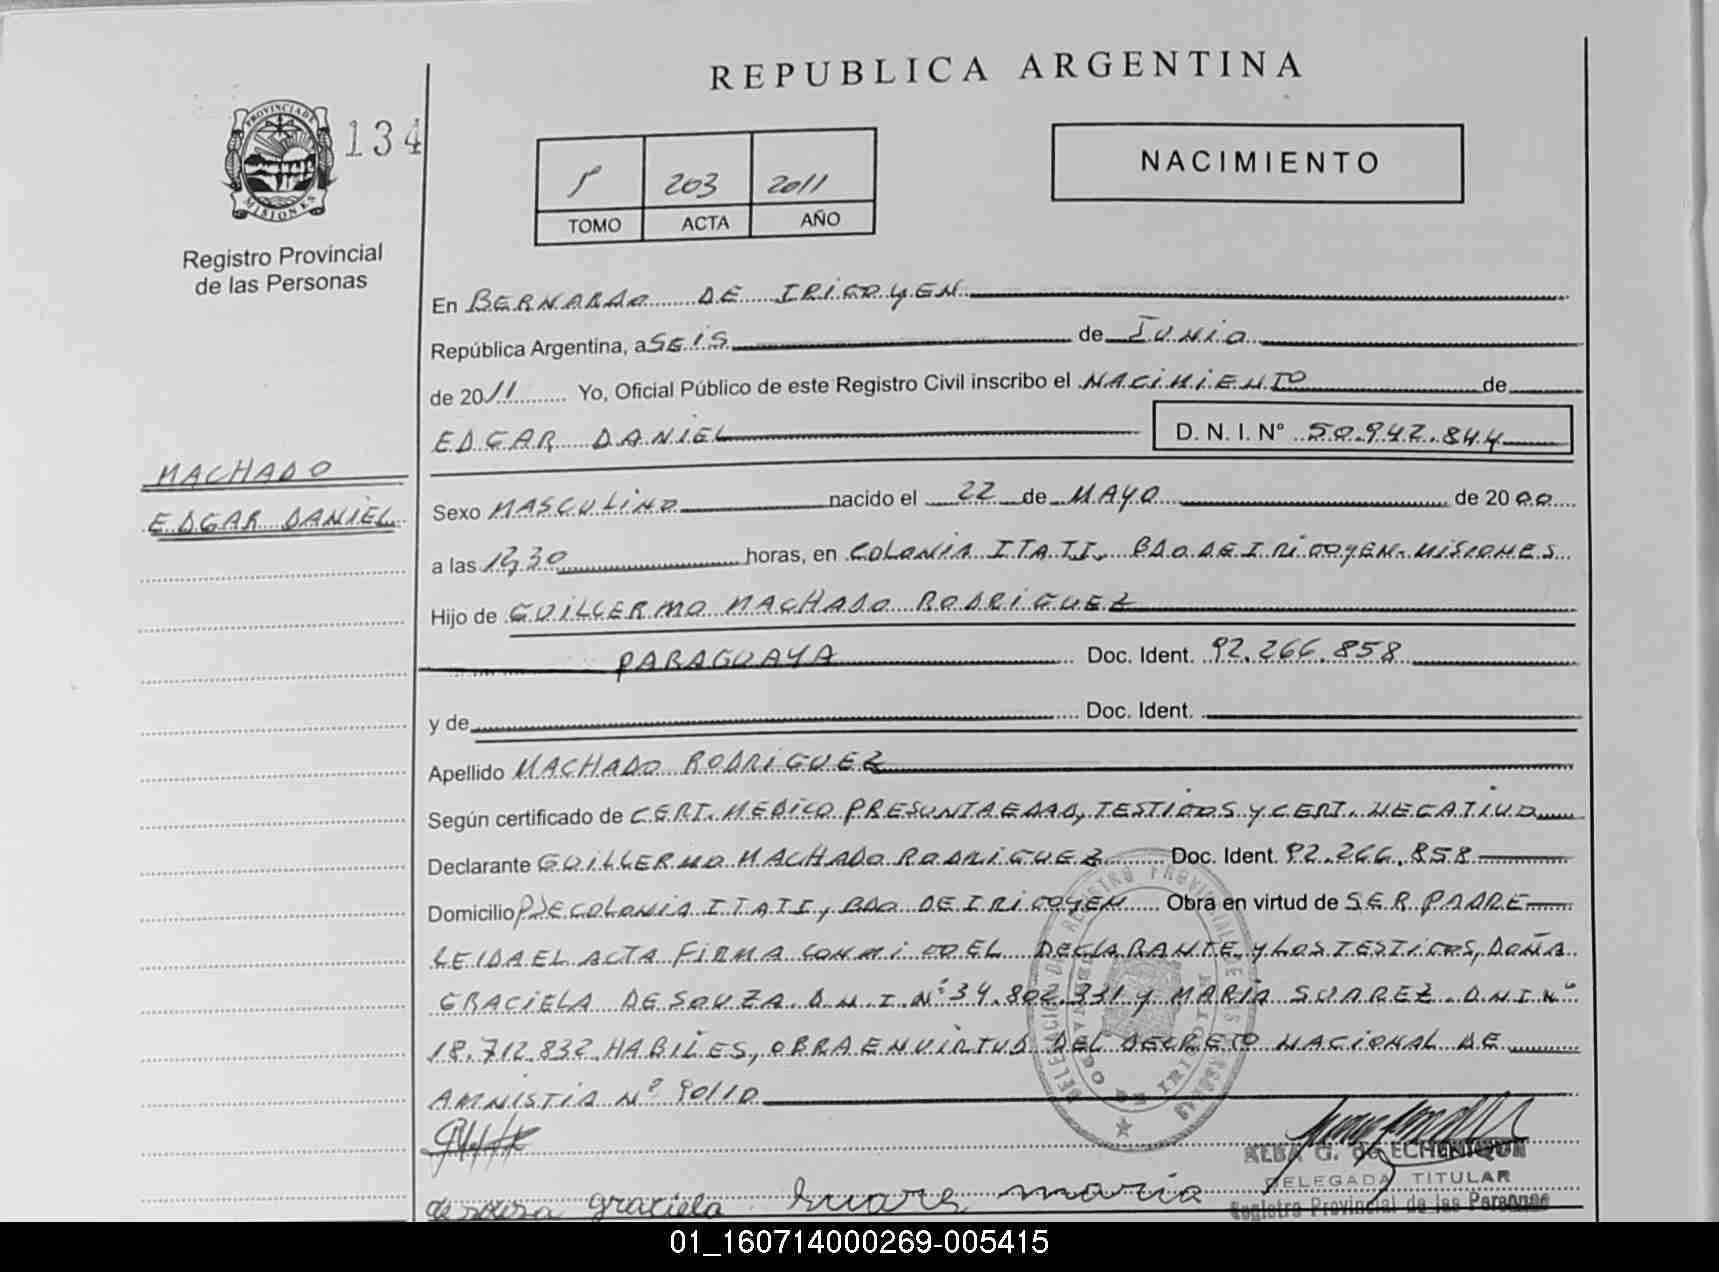 REPUBLICA ARGENTINA
PROVINCIA DE
MISIONES
134
Registro Provincial
de las Personas
203 2011
TOMO ACTA AÑO
NACIMIENTO
En BERNARDO DE IRIGOYEN
República Argentina, a SEIS de JUNIO
de 2011 Yo, Oficial Público de este Registro Civil inscribo el NACIMIENTO de
EDGAR DANIEL D. N. I. N° 50.942.844
MACHADO
EDGAR DANIEL
Sexo MASCULINO nacido el 22 de MAYO de 2000
a las 30 horas, en COLONIA ITATI, BDO DE IRIGOYEN-MISIONES
Hijo de GUILLERMO MACHADO RODRIGUEZ
PARAGUAYA Doc. Ident. 92.266.858
y de Doc. Ident.
Apellido MACHADO RODRIGUEZ
Según certificado de CERT. MEDICO PRESUNTA EDAD, TESTIGOS Y CERT. NEGATIVO
Declarante GUILLERMO MACHADO RODRIGUEZ Doc. Ident. 92.266.858
Domicilio COLONIA ITATI, BDO DE IRIGOYEN Obra en virtud de SER PADRE
LEIDA EL ACTA FIRMA CONMIGO EL DECLARANTE Y LOS TESTIGOS, DOÑA
GRACIELA DE SOUZA D.N.I.N° 34.802.331 Y MARIA SUAREZ D.N.I N°
18.712.832 HABILES, OBRA EN VIRTUD DEL DECRETO NACIONAL DE
AMNISTIA N° 90110
DELEGACION DE REGISTRO PROVINCIAL DE LAS PERSONAS
BERNARDO DE IRIGOYEN
ALBA G. de ECHENIQUE
DELEGADA TITULAR
Registro Provincial de las Personas
de souza graciela suare maria
01_160714000269-005415